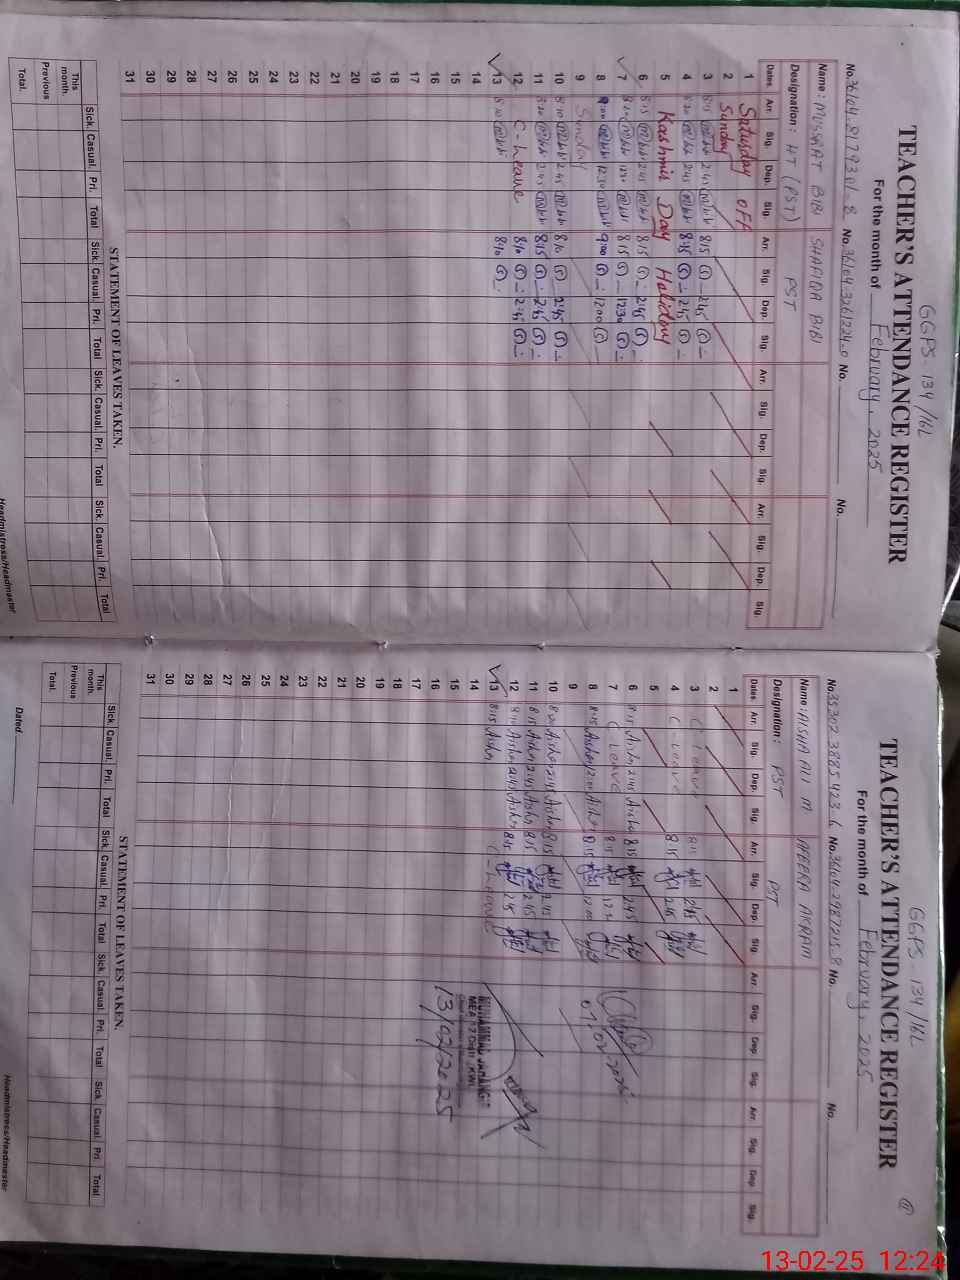 GGPS - 134/16L
TEACHER'S ATTENDANCE REGISTER
For the month of February, 2025
No. 36104.8179301-8 No. 36104.3261224-0 No. No.
Name: MUSSRAT BIBI SHAFIQA BIBI
Designation: HT (PST) PST
Dates. Arr. Sig. Dep. Sig. Arr. Sig. Dep. Sig. Arr. Sig. Dep. Sig. Arr. Sig. Dep. Sig.
1 Saturday OFF
2 Sunday
3 8:15 2:45 8:15 2:45
4 8:20 2:45 8:15 2:45
5 Kashmir Day Holiday
6 8:15 2:45 8:15 2:45
7 8:20 1230 8:15 1230
8 9:00 12:30 9:00 12:00
9 Sunday
10 8:10 2:45 8:10 2:45
11 8:20 2:45 8:15 2:45
12 C-Leave 8:10 2:45
13 8:10 8:10
14
15
16
17
18
19
20
21
22
23
24
25
26
27
28
29
30
31
STATEMENT OF LEAVES TAKEN.
Sick. Casual. Pri. Total Sick. Casual. Pri. Total Sick. Casual. Pri. Total Sick. Casual. Pri. Total
This month.
Previous
Total.
Headmistress/Headmaster
GGPS - 134/16L
TEACHER'S ATTENDANCE REGISTER
For the month of February, 2025
No. 35302.3885423.6 No. 36104.2987215.8 No. No.
Name: AISHA ALI M AFEERA AKRAM
Designation: PST PST
Dates. Arr. Sig. Dep. Sig. Arr. Sig. Dep. Sig. Arr. Sig. Dep. Sig. Arr. Sig. Dep. Sig.
1
2
3 C-Leave 8:15 2:45
4 C-Leave 8:15 2:45
5
6 8:15 Aisha 2:45 Aisha 8:15 2:45
7 C-Leave 8:15 12:30
8 8:15 Aisha 12:00 Aisha 8:15 12:00
9
10 8:20 Aisha 2:45 Aisha 8:15 2:45
11 8:15 Aisha 2:45 Aisha 8:15 2:45
12 8:10 Aisha 2:45 Aisha 8:15 2:45
13 8:15 Aisha C-Leave
14
15
16
17
18
19
20
21
22
23
24
25
26
27
28
29
30
31
MUHAMMAD JAHANGIR
13/02/2025
STATEMENT OF LEAVES TAKEN.
Sick. Casual. Pri. Total Sick. Casual. Pri. Total Sick. Casual. Pri. Total Sick. Casual. Pri Total
This month.
Previous
Total.
Dated
Headmistress/Headmaster
13-02-25 12:24